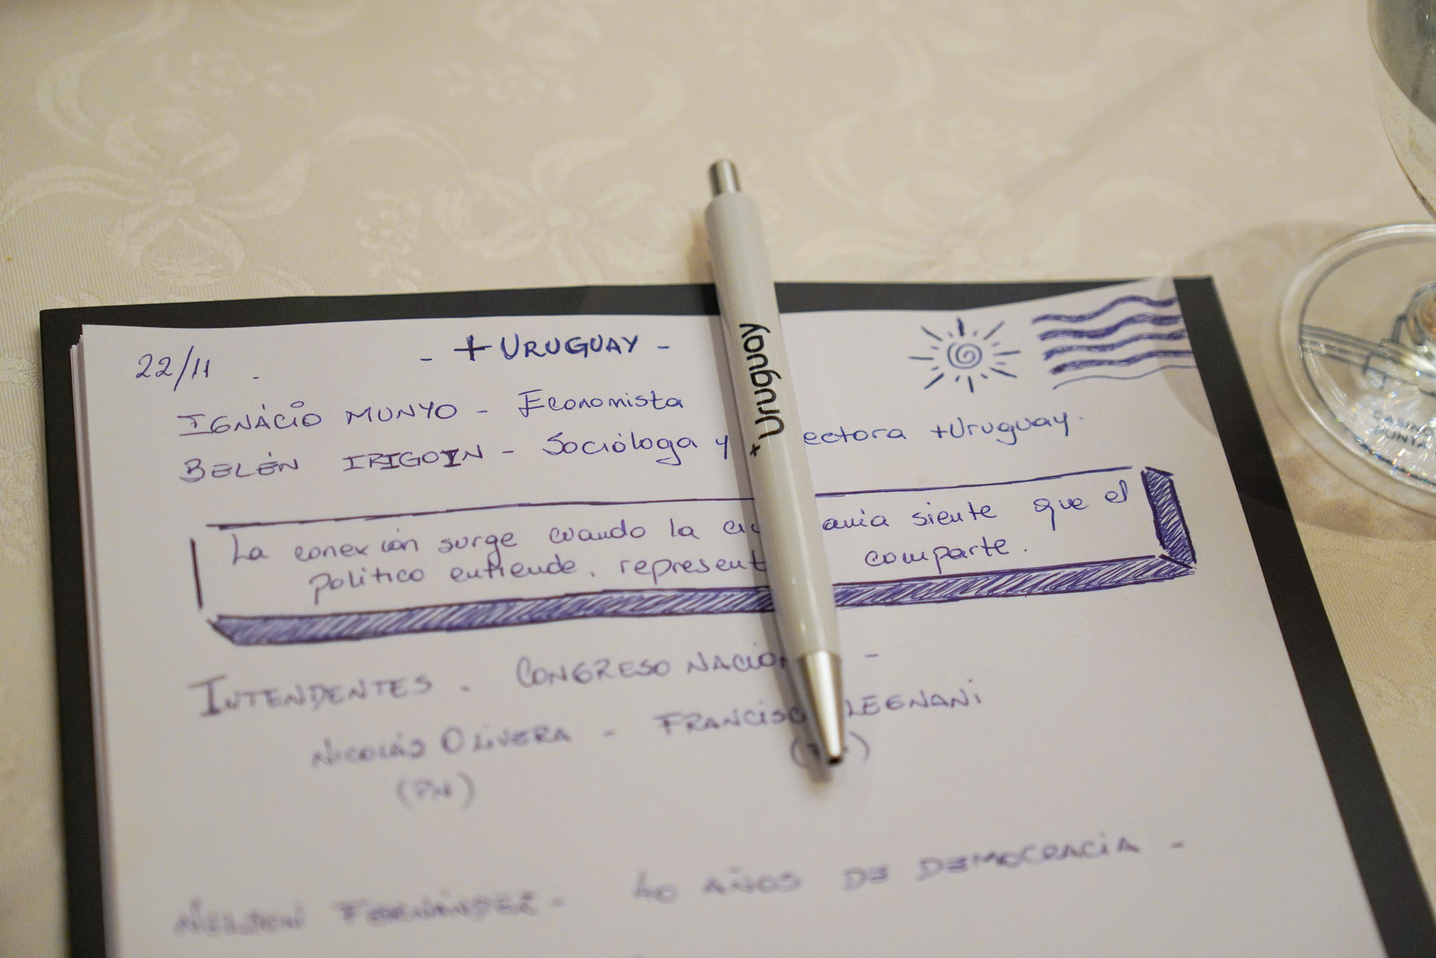 22/11 . - + URUGUAY -
IGNÁCIO MUNYO - Economista
BELÉN IRIGOIN - Socióloga y ectora +Uruguay.
La conexión surge cuando la ciu anía siente que el
político entiende, represent comparte.
INTENDENTES . CONGRESO NACIÓN -
NICOLÁS OLIVERA - FRANCISCO LEGNANI
(PN)
NELSON FERNÁNDEZ - 40 AÑOS DE DEMOCRACIA -
+Uruguay
CASINO
PUNTA